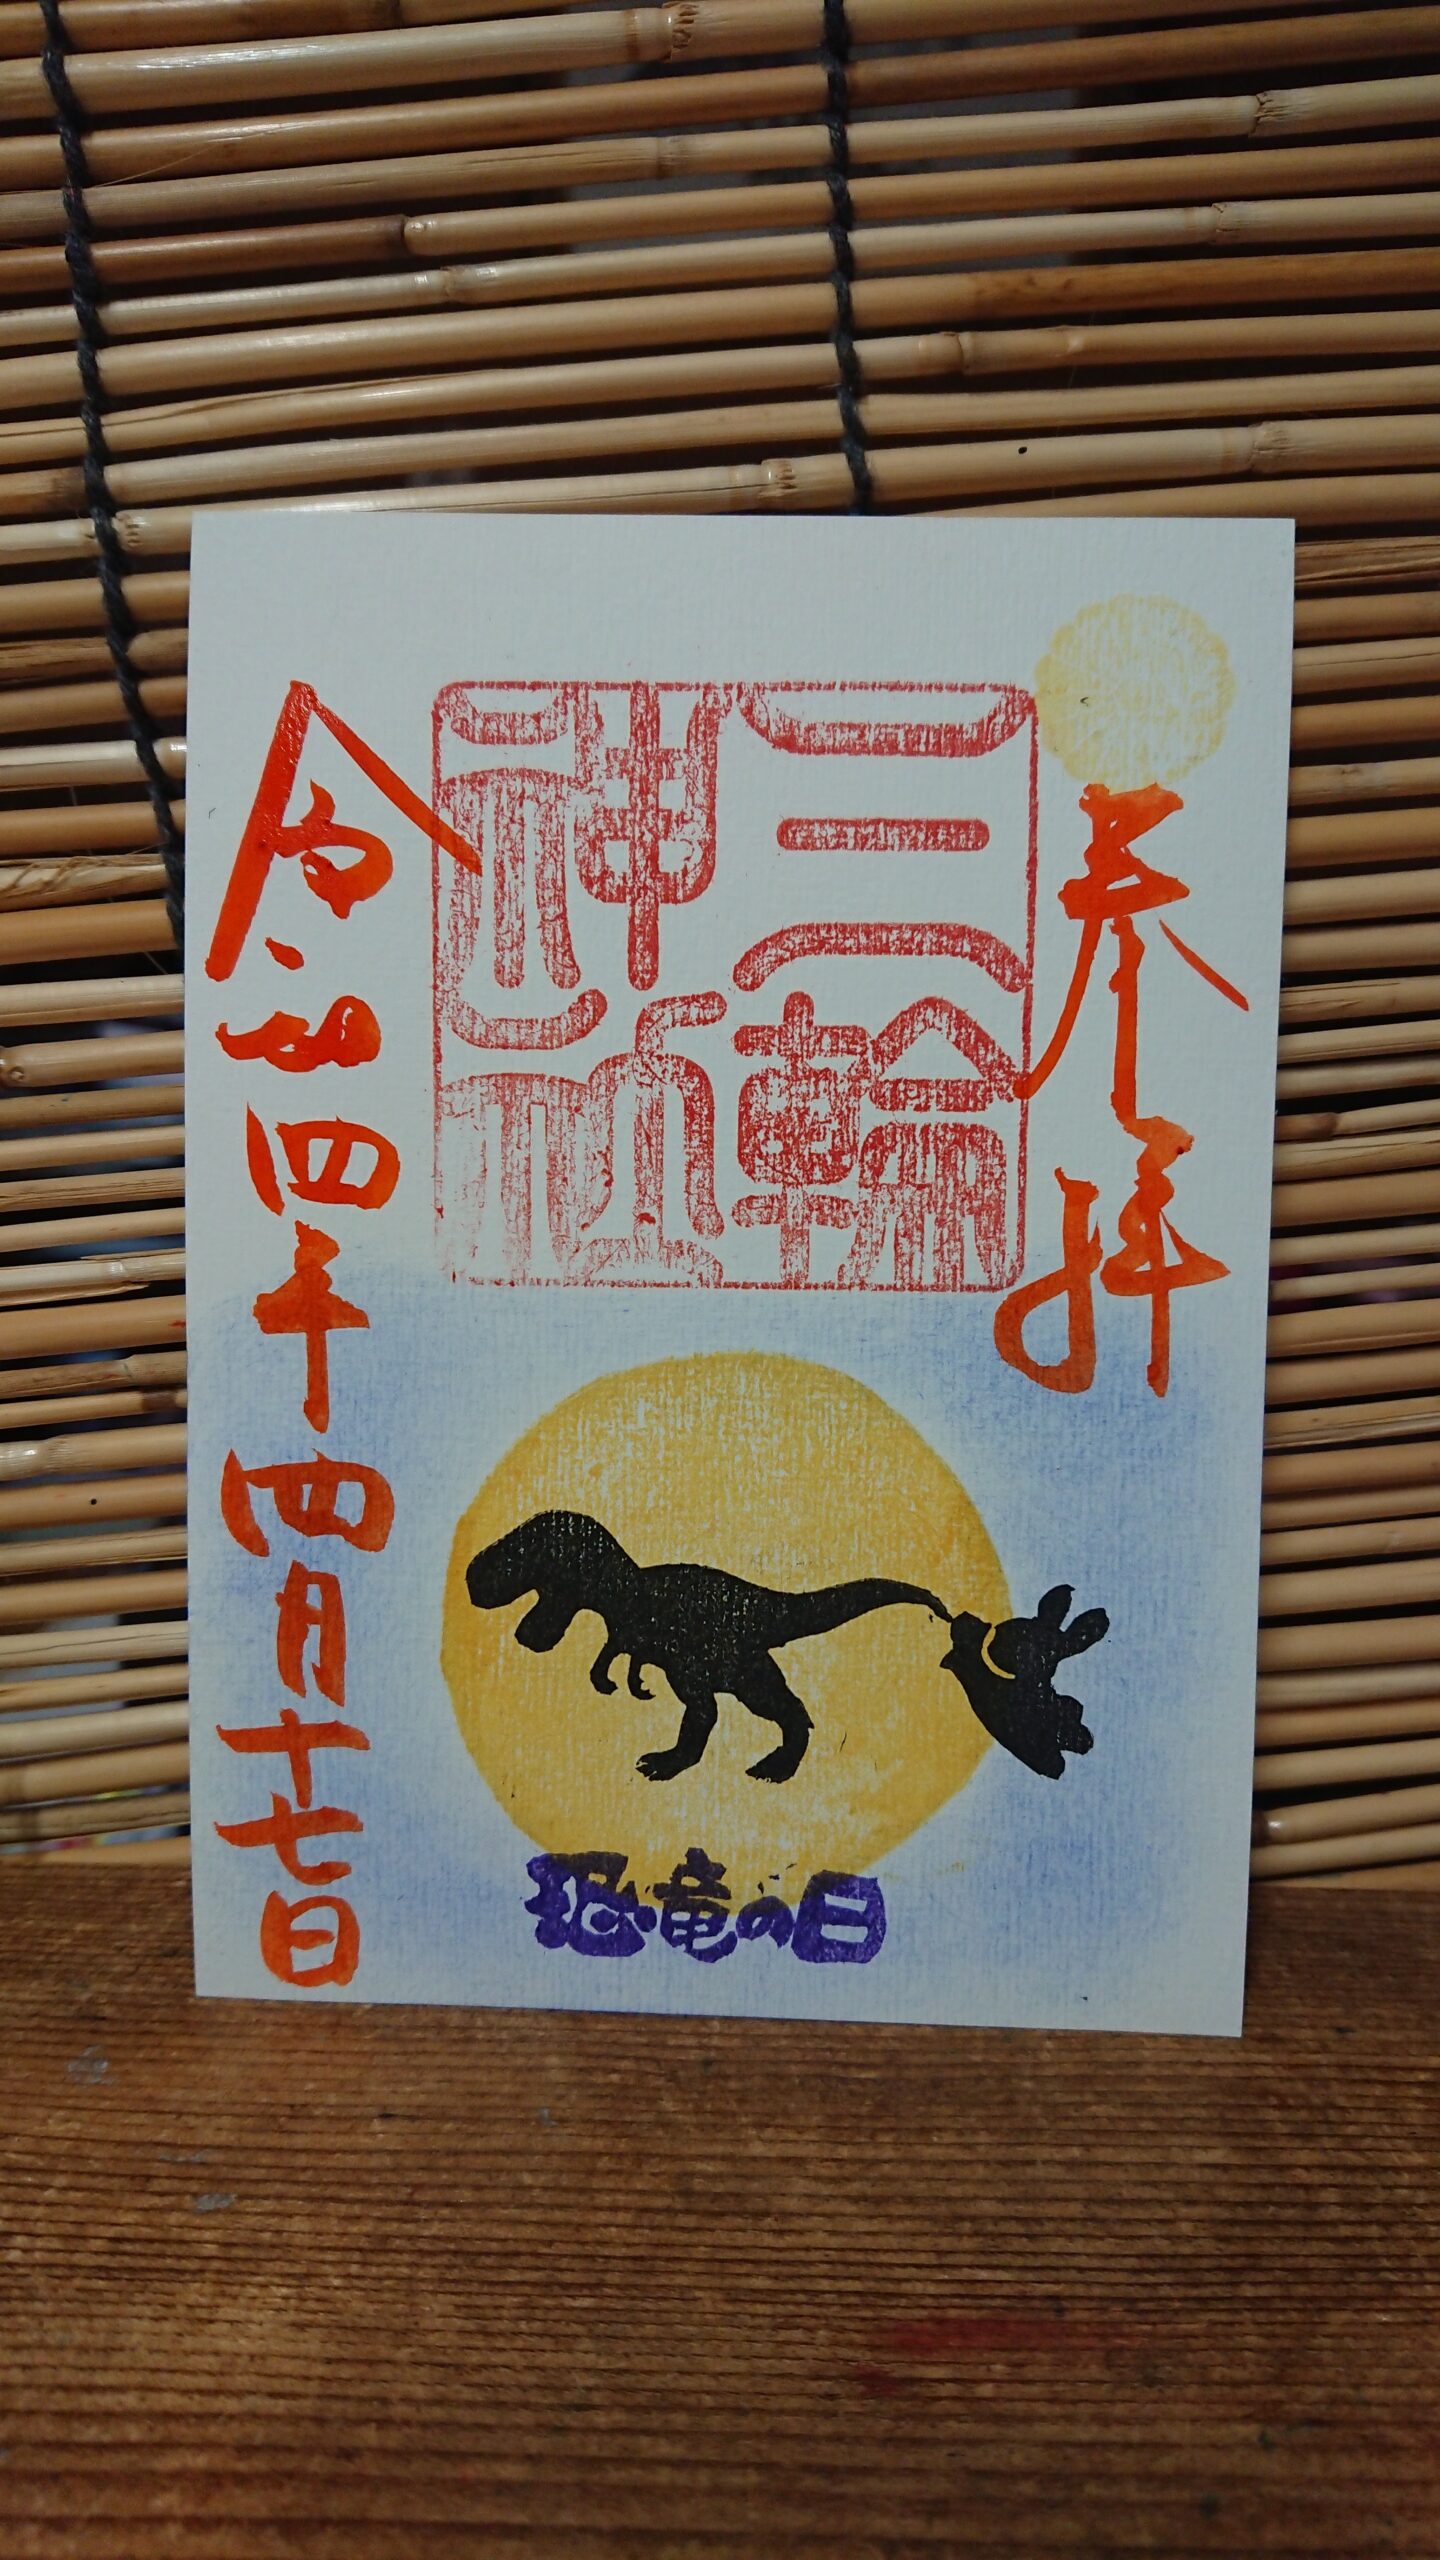 参拝
三輪
神社
恐竜の日
令和四年四月十七日